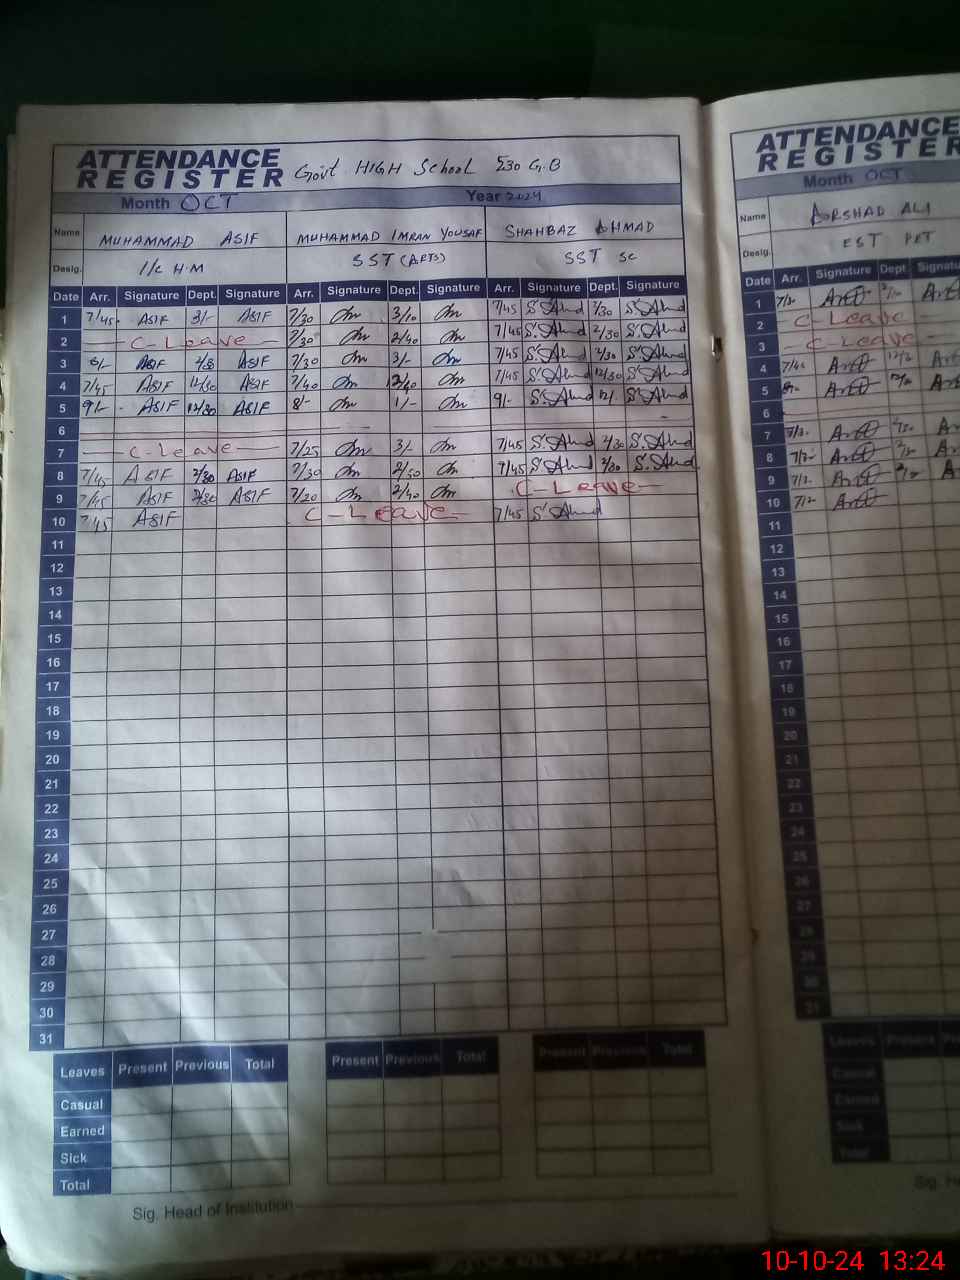 ATTENDANCE REGISTER Govt HIGH School 530 G.B
Month OCT Year 2024
Name MUHAMMAD ASIF MUHAMMAD IMRAN YOUSAF SHAHBAZ AHMAD
Desig. I/c H.M SST (ARTS) SST Sc
Date Arr. Signature Dept. Signature Arr. Signature Dept. Signature Arr. Signature Dept. Signature
1 7/45 ASIF 3/- ASIF 7/30 3/10 7/45 S.Ahmd 2/30 S.Ahmd
2 C-Leave 7/30 2/40 7/45 S.Ahmd 2/30 S.Ahmd
3 8/- ASIF 2/30 ASIF 7/30 3/- 7/45 S.Ahmd 2/30 S.Ahmd
4 7/45 ASIF 12/30 ASIF 7/40 12/40 7/45 S.Ahmd 12/30 S.Ahmd
5 9/- ASIF 12/30 ASIF 8/- 1/- 9/- S.Ahmd 12/ S.Ahmd
6
7 C-Leave 7/25 3/- 7/45 S.Ahmd 2/30 S.Ahmd
8 7/45 ASIF 2/30 ASIF 7/30 2/50 7/45 S.Ahmd 2/30 S.Ahmd
9 7/45 ASIF 2/30 ASIF 7/20 2/40 C-Leave
10 7/45 ASIF C-Leave 7/45 S.Ahmd
11
12
13
14
15
16
17
18
19
20
21
22
23
24
25
26
27
28
29
30
31
Leaves Present Previous Total Present Previous Total Present Previous Total
Casual
Earned
Sick
Total
Sig. Head of Institution
ATTENDANCE
REGISTER
Month OCT
Name ARSHAD ALI
Desig. EST PET
Date Arr. Signature Dept.
1 7/3-
2 C-Leave
3 C-Leave
4 7/4-
5
6
7 7/3-
8 7/3-
9 7/3-
10 7/3-
11
12
13
14
15
16
17
18
19
20
21
22
23
24
25
26
27
28
29
30
31
Leaves Present
Casual
Earned
Sick
Total
10-10-24 13:24